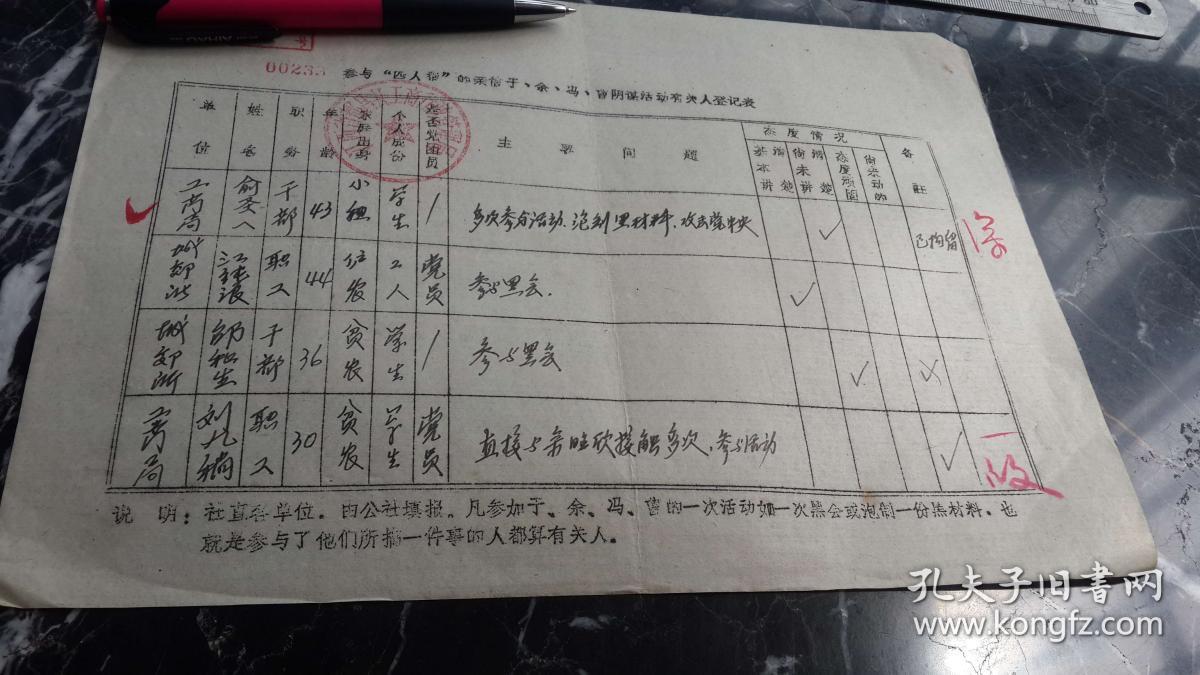 00233
参与“四人帮”的亲信于、余、冯、曾阴谋活动有关人登记表
单位 姓名 职务 年龄 家庭出身 个人成份 是否党团员 主要问题 态度情况 备註
基本讲清 尚未讲清楚 态度顽固 尚未动的
工商局 干部 43 小租 学生 / 多次参与活动、泡制黑材料、攻击党中央 ✓ 已拘留
城郊所 职工 44 位农 工人 党员 参与黑会. ✓
城郊所 邹松生 干部 36 贫农 学生 / 参与黑会 ✓
工商局 职工 30 贫农 学生 党员 直接与余 接触多次、参与活动 ✓
一般
说明：社直各单位，由公社填报。凡参加于、余、冯、曾的一次活动如一次黑会或泡制一份黑材料，也
就是参与了他们所搞一件事的人都算有关人。
孔夫子旧书网
www.kongfz.com